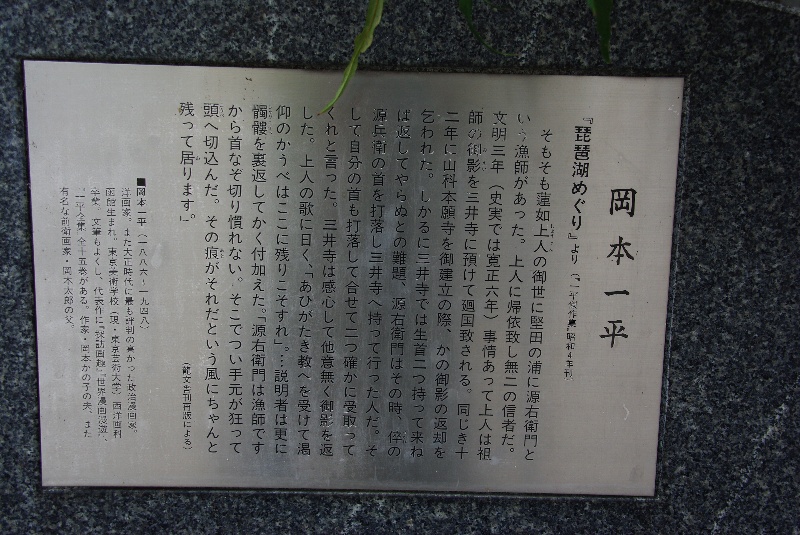 岡本一平
『琵琶湖めぐり』より(『一平傑作集』昭和4年刊)
そもそも蓮如上人の御世に堅田の浦に源右衛門と
いう漁師があった。上人に帰依致し無二の信者だ。
文明三年(史実では寛正六年)事情あって上人は祖
師の御影を三井寺に預けて廻国致される。同じき十
二年に山科本願寺を御建立の際、かの御影の返却を
乞われた。しかるに三井寺では生首二つ持って来ね
ば返してやらぬとの難題、源右衛門はその時、倅の
源兵衛の首を打落し三井寺へ持って行った人だ。そ
して自分の首も打落して合せて二つ確かに受取って
くれと言った。三井寺は感心して他意無く御影を返
した。上人の歌に曰く、「あひがたき教へを受けて渇
仰のかうべはここに残りこそすれ」。…説明者は更に
髑髏を裏返してかく付加えた。「源右衛門は漁師です
から首なぞ切り慣れない。そこでつい手元が狂って
頭へ切込んだ。その痕がそれだという風にちゃんと
残って居ります」。
■岡本一平(一八八六〜一九四八)
洋画家。また大正時代に最も評判の高かった政治漫画家。
函館生まれ。東京美術学校(現・東京芸術大学)西洋画科
卒業。文筆もよくし、代表作に『探訪画趣』『世界漫画漫遊』、
『一平全集』全十五巻がある。作家・岡本かの子の夫、また
有名な前衛画家・岡本太郎の父。